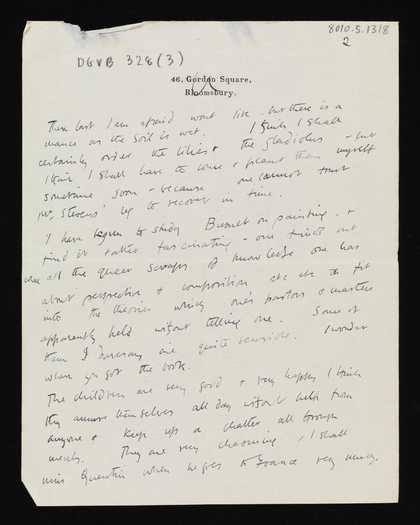 8010.5.1318
2
DGVB 328 (3)
46, Gordon Square,
Bloomsbury.
These last I am afraid wont live - but there is a
chance as the soil is wet. I think I shall
certainly order the lilies & the gladiolus - but
I think I shall have to come & plant them myself
sometime soon - because one cannot trust
Mr. Stevens' leg to recover in time.
I have begun to study Burnet on painting - &
find it rather fascinating - one finds out
where all the queer scraps of knowledge one has
about perspective & composition etc etc fit
into the theories which one's pastors & masters
apparently held without telling one. Some of
them I are quite sensible. I wonder
when you got the book.
The children are very good & very happy I think
they amuse themselves all day without help from
anyone & keep up a chatter all through
meals. They are very charming & I shall
miss Quentin when he goes to France very much.